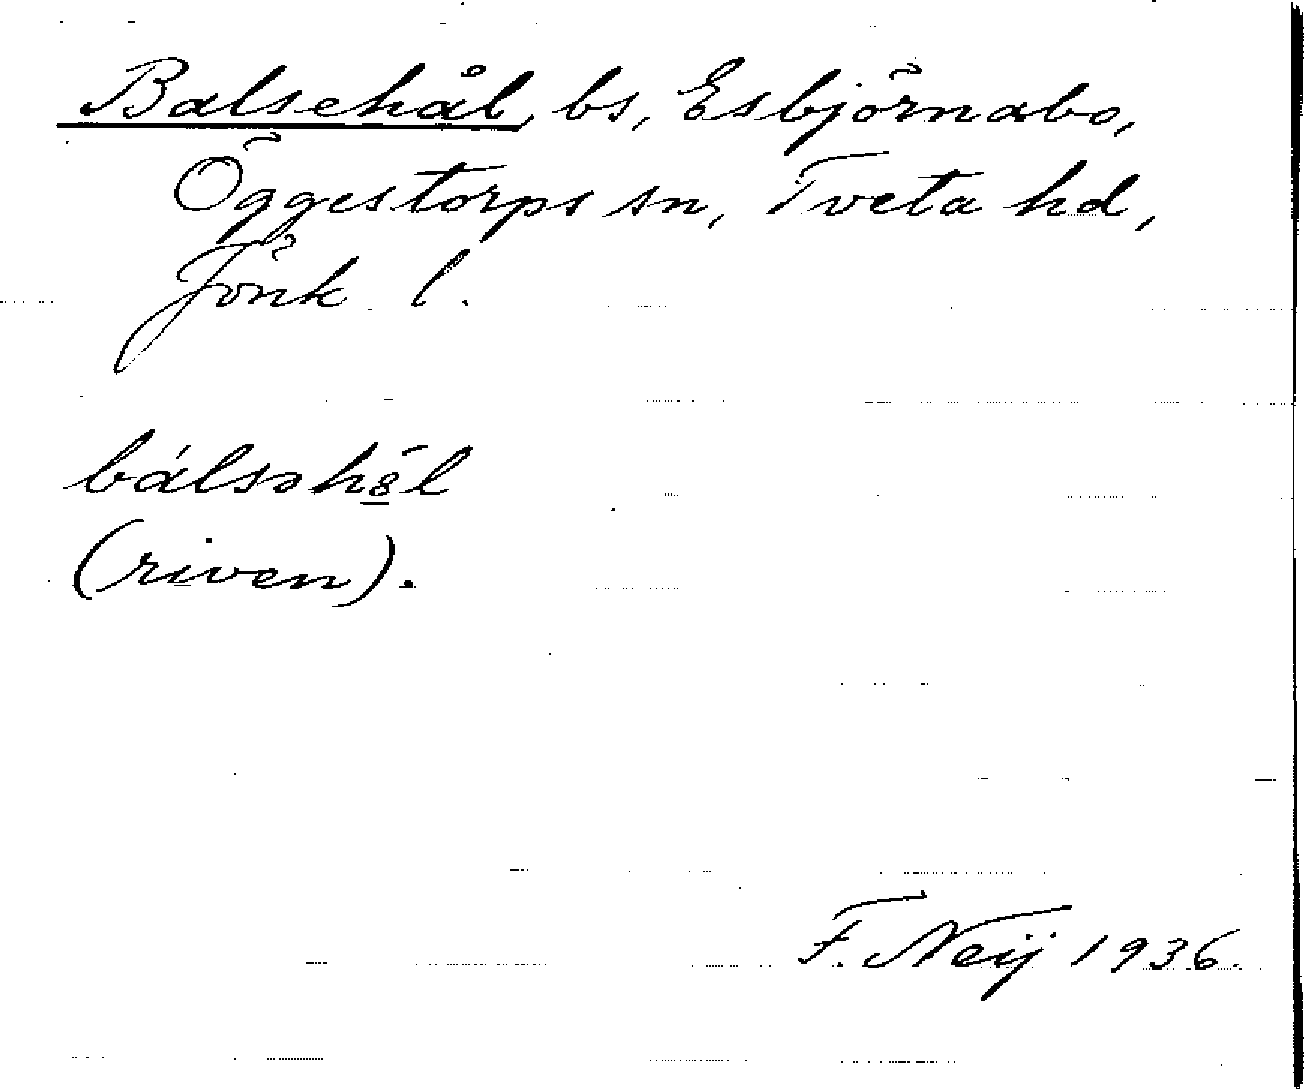 Balsehål, bs, Esbjörnabo,
Öggestorps sn, Tveta hd,
Jönk l.
bálsəhö̀l
(riven).
F. Neij 1936.